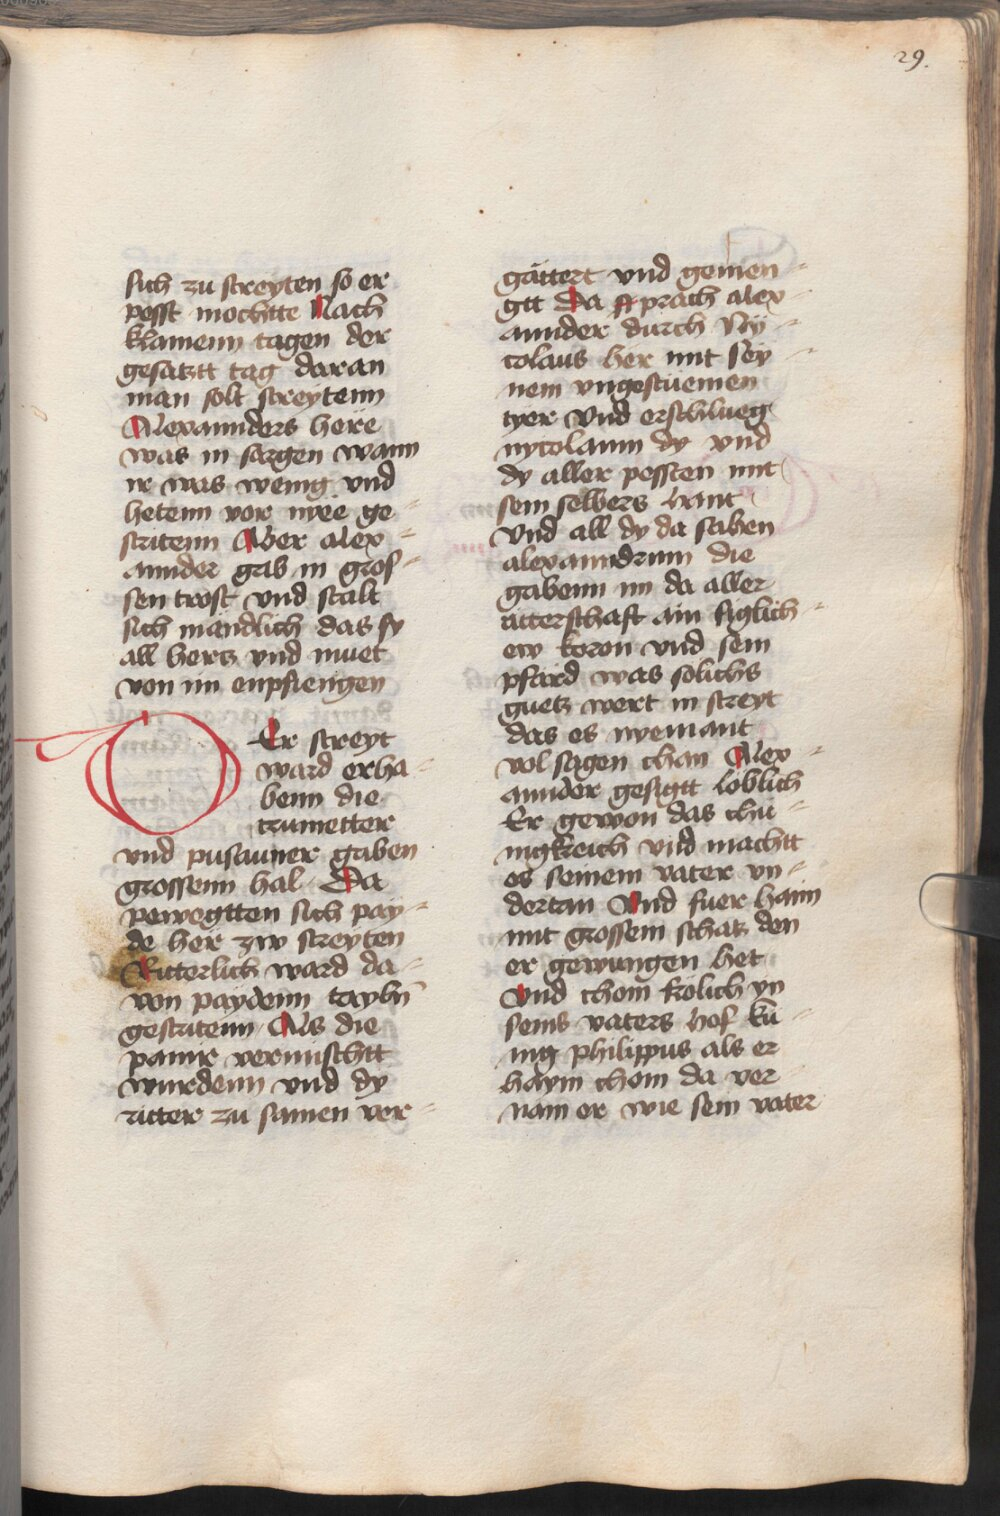 29.
sich zu streyten so er
pesst mochtte Nach
klainenn tagen der
gesatztt tag daran
man solt streytenn
Alexannders here
was in sorgen wann
ir was wenig vnd
hetenn vor nye ge-
stritenn Aber alex-
annder gab in gros-
sen trost vnd stalt
sich mandlich das sy
all hertz vnd muet
von im enpfiengen
Er streyt
ward erha-
benn die
trumetter
vnd pusauner gaben
grossenn hal Da
pewegtten sich pay-
de her zw streyten
Ritterlich ward da-
von paydenn tayln
gestritenn Als die
panir vermischtt
wurdenn vnd dy
ritter zu samen ver-
gattert vnd gemen-
gtt Da sprach alex-
annder durch Ny-
colaus her mit sey-
nem vngestuemen
tyer Vnd erschlueg
nycolaum dy vnd
dy aller pessten mit
sein selbers hant
Vnd all dy da sahen
alexanndrum die
gabenn im da aller
ritterschaft ain siglich-
ew koron vnd sein
pfard was solichs
guetz wert in streyt
das es nyemant
vol sagen chan Alex-
annder gesigtt loblich
Er gewon das chu-
nigkreich vnd machtt
es seinem vater vn-
dertan Vnd fuer haim
mit grossem schatz den
er gewungen het
Vnd chom frolich yn
seins vaters hof ku-
nig philippus als er
haym chom da ver-
nam er wie sein vater